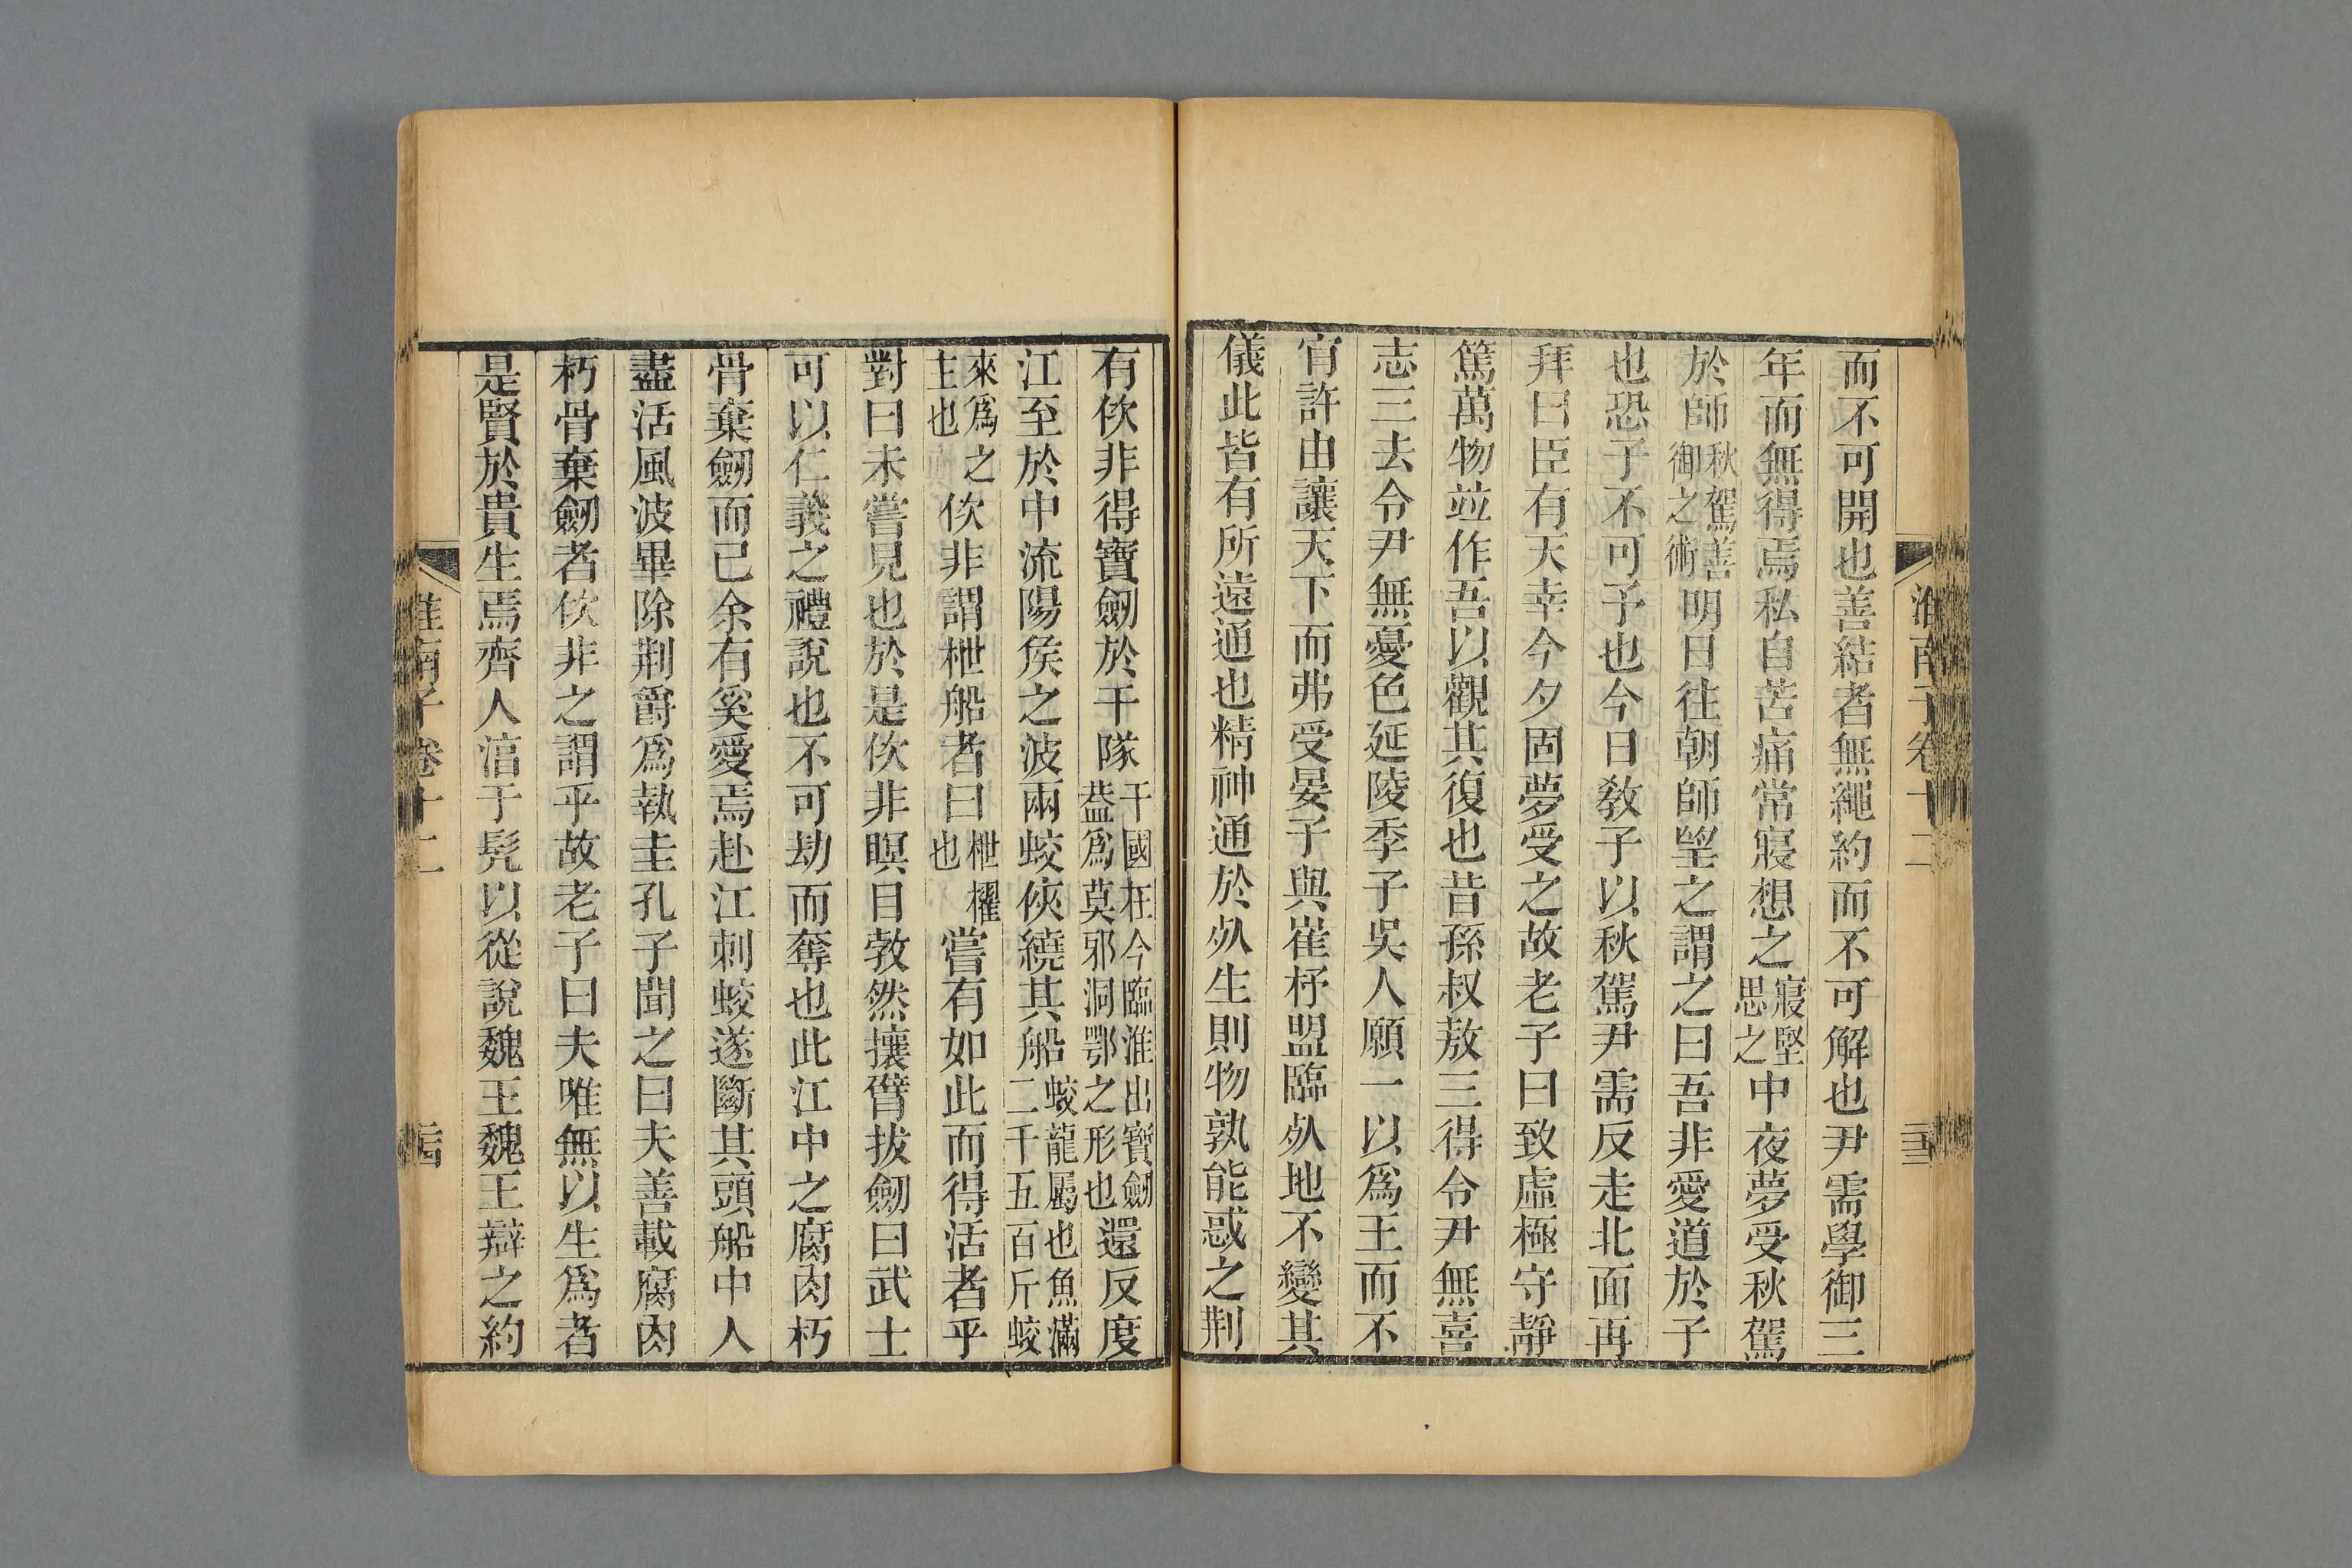 而不可開也善結者無繩約而不可解也尹需學御三
年而無得焉私自苦痛常寢想之寢堅思之中夜夢受秋駕
於師秋駕善御之術明日往朝師望之謂之曰吾非愛道於子
也恐子不可予也今日敎子以秋駕尹需反走北面再
拜曰臣有天幸今夕固夢受之故老子曰致虛極守靜
篤萬物竝作吾以觀其復也昔孫叔敖三得令尹無喜
志三去令尹無憂色延陵季子吳人願一以爲王而不
肯許由讓天下而弗受晏子與崔杼盟臨㱾地不變其
儀此皆有所遠通也精神通於㱾生則物孰能惑之荆
淮南子卷十二
有佽非得寶劒於干隊干國在今臨淮出寶劒葢爲莫邪洞鄂之形也還反度
江至於中流陽侯之波兩蛟俠繞其船蛟龍屬也魚滿二千五百斤蛟
來爲之主也佽非謂枻船者曰枻櫂也嘗有如此而得活者乎
對曰未嘗見也於是佽非瞑目敦然攘臂拔劒曰武士
可以仁義之禮說也不可劫而奪也此江中之腐肉朽
骨棄劒而已余有奚愛焉赴江刺蛟遂斷其頭船中人
盡活風波畢除荆爵爲執圭孔子聞之曰夫善載腐肉
朽骨棄劒者佽非之謂乎故老子曰夫唯無以生爲者
是賢於貴生焉齊人淳于髠以從說魏王魏王辯之約
淮南子卷十二